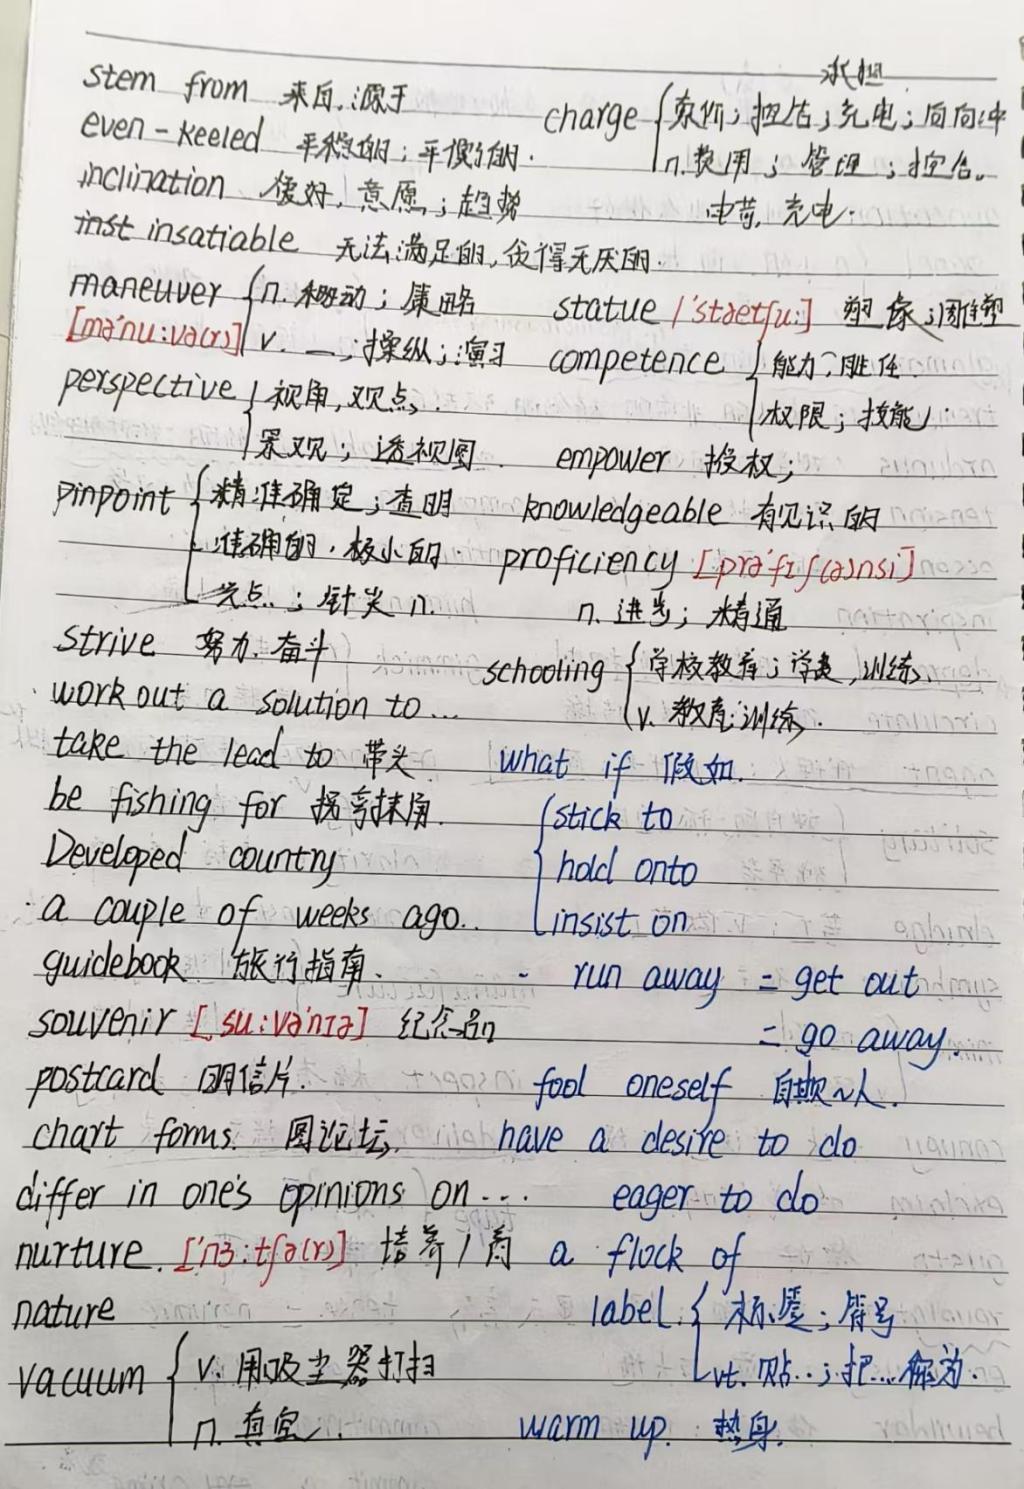 承担
stem from 来自,源于
charge { 索价; 控告; 充电; 向前冲
even-keeled 平稳的; 平衡的.
n. 费用; 管理; 控告。
inclination 偏好, 意愿; 趋势
电荷, 充电.
inst insatiable 无法满足的, 贪得无厌的.
maneuver { n. 移动; 策略
statue /'stætʃu:] 塑像; 雕塑
[mə'nu:və(r)] v. —; 操纵; 演习
competence { 能力; 胜任.
perspective { 视角, 观点.
权限; 技能.
景观; 透视图.
empower 授权;
pinpoint { 精准确定; 查明
knowledgeable 有见识的
准确的. 极小的.
proficiency [prə'fɪʃ(ə)nsi]
光点.; 针尖 n.
n. 进步; 精通
strive 努力. 奋斗
schooling { 学校教育; 学费, 训练.
work out a solution to...
v. 教育; 训练.
take the lead to 带头
what if 假如.
be fishing for 拐弯抹角.
{ stick to
Developed country
hold onto
a couple of weeks ago..
insist on
guidebook 旅行指南.
run away = get out
souvenir [,su:və'nɪə] 纪念品
= go away.
postcard 明信片.
fool oneself 自欺~人.
chart forms. 圆论坛.
have a desire to do
differ in one's opinions on...
eager to do
nurture. ['nɜ:tʃə(r)] 培养/育
a flock of
nature
label. { 标签; 符号
vacuum { v. 用吸尘器打扫
vt. 贴..; 把...称为.
n. 真空.
warm up. 热身.